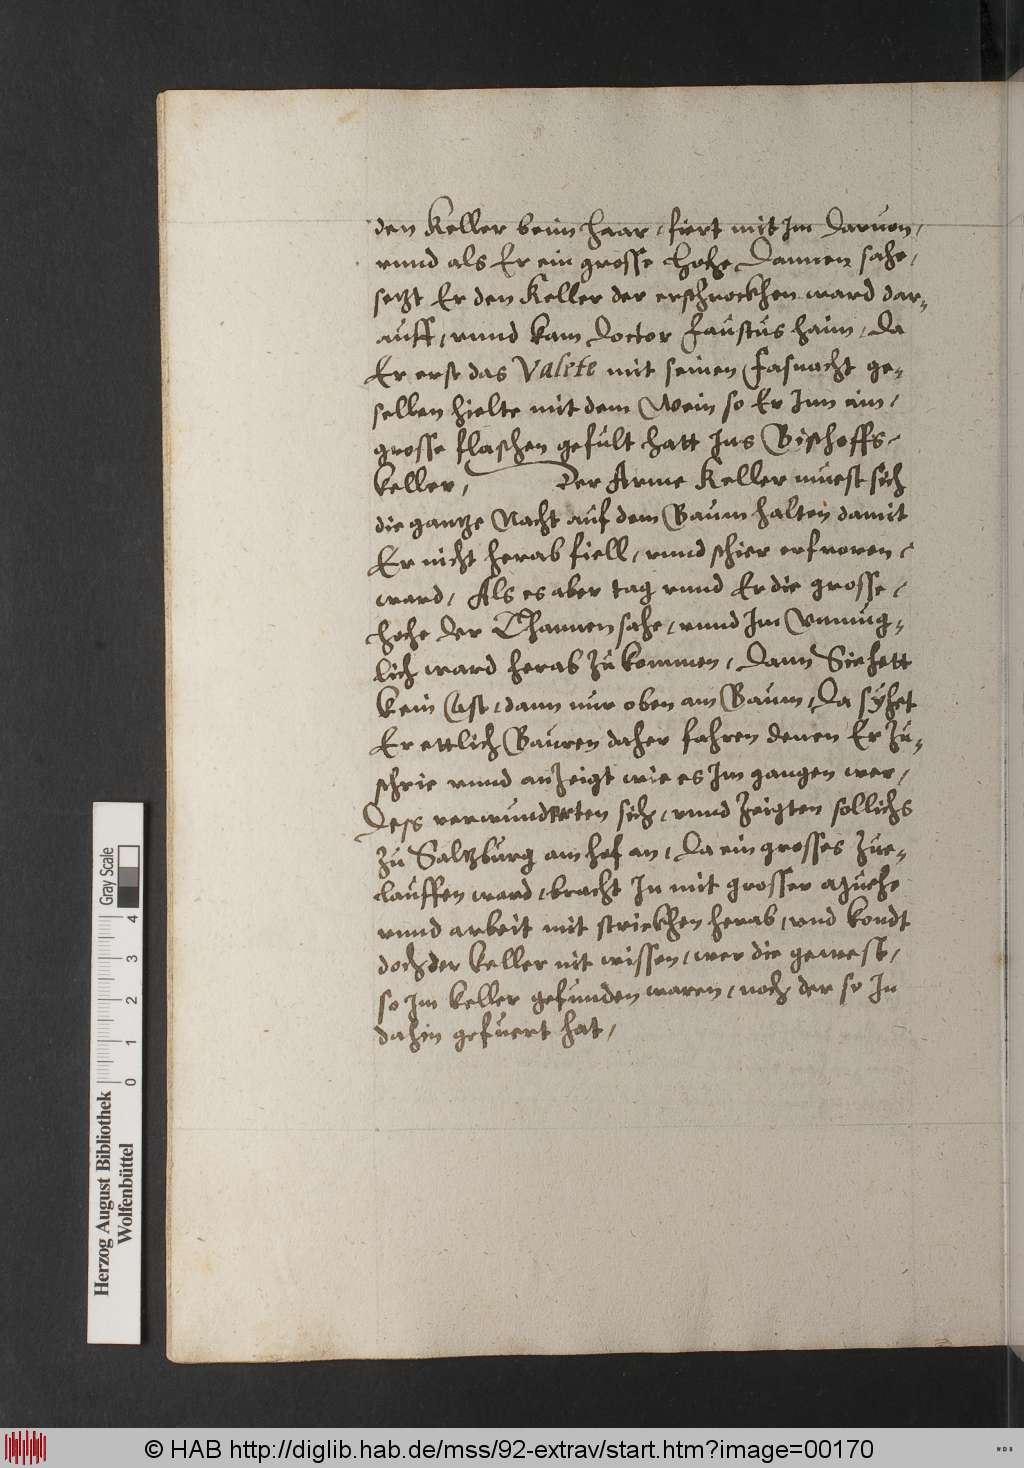 den Keller beim haar, fiert mit Im daruon,
vnnd als Er ein grosse hohe Dannen sahe,
setzt Er den Keller der erschrockhen ward dar-
auff, vnnd kam Doctor Faustus haim, Da
Er erst das Valete mit seinen Fasnacht ge-
sellen hielte mit dem Wein so Er Inn ain,
grosse flaschen gefült hatt Ins Bischoffs-
keller, Der Arme Keller muest sich
die gantze Nacht auf dem Baum halten damit
Er nicht herab fiell, vnnd schier erfroren,
ward, Als es aber tag vnnd Er die grosse,
hohe der Thannen sahe, vnnd Im Vnmüg-
lich ward herab zu kommen, Dann Sie hett
kein Ast, dann nur oben am Baum, Da syhet
Er ettlich Bauren daher fahren denen Er zu-
schrie vnnd anzeigt wie es Im gangen wer,
Dess verwunderten sich, vnnd zeigten sollichs
zu Saltzburg am hof an, Da ein grosses zue-
lauffen ward, bracht In mit grosser
vnnd arbeit mit strickhen herab, vnd kondt
doch der keller nit wissen, wer die gewest,
so Im keller gefunden waren, noch der so In
dahin gefuert hat,
Gray Scale
0 1 2 3 4
Herzog August Bibliothek
Wolfenbüttel
© HAB http://diglib.hab.de/mss/92-extrav/start.htm?image=00170